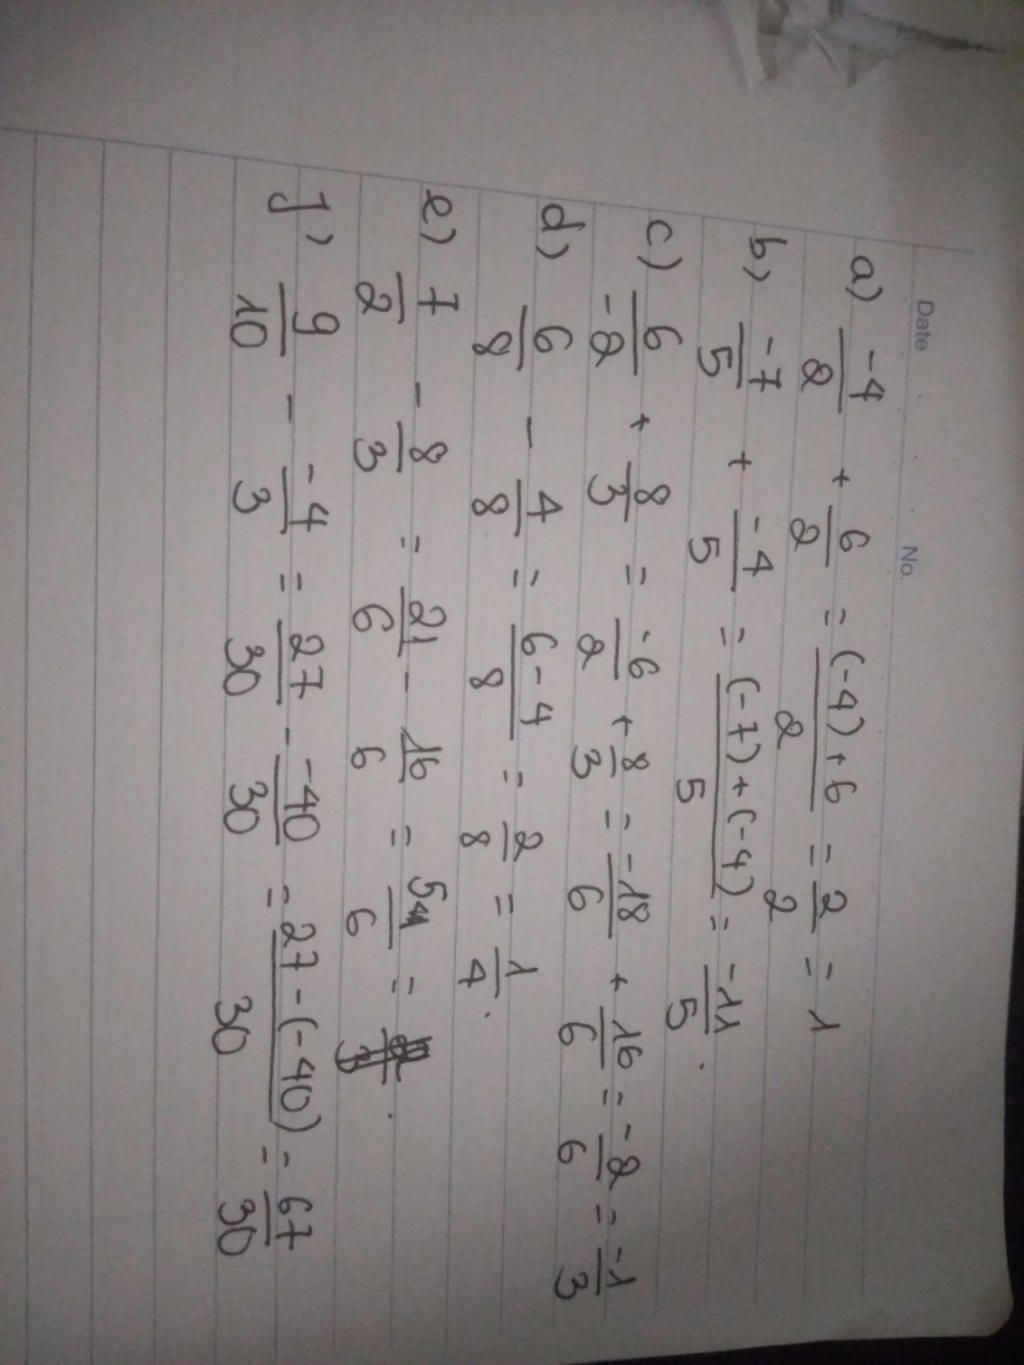 Date No.
a) -4/2 + 6/2 = (-4)+6/2 = 2/2 = 1
b) -7/5 + -4/5 = (-7)+(-4)/5 = -11/5.
c) 6/-2 + 8/3 = -6/2 + 8/3 = -18/6 + 16/6 = -2/6 = -1/3
d) 6/8 - 4/8 = 6-4/8 = 2/8 = 1/4.
e) 7/2 - 8/3 = 21/6 - 16/6 = 5/6 = .
J) 9/10 - -4/3 = 27/30 - -40/30 = 27-(-40)/30 = 67/30